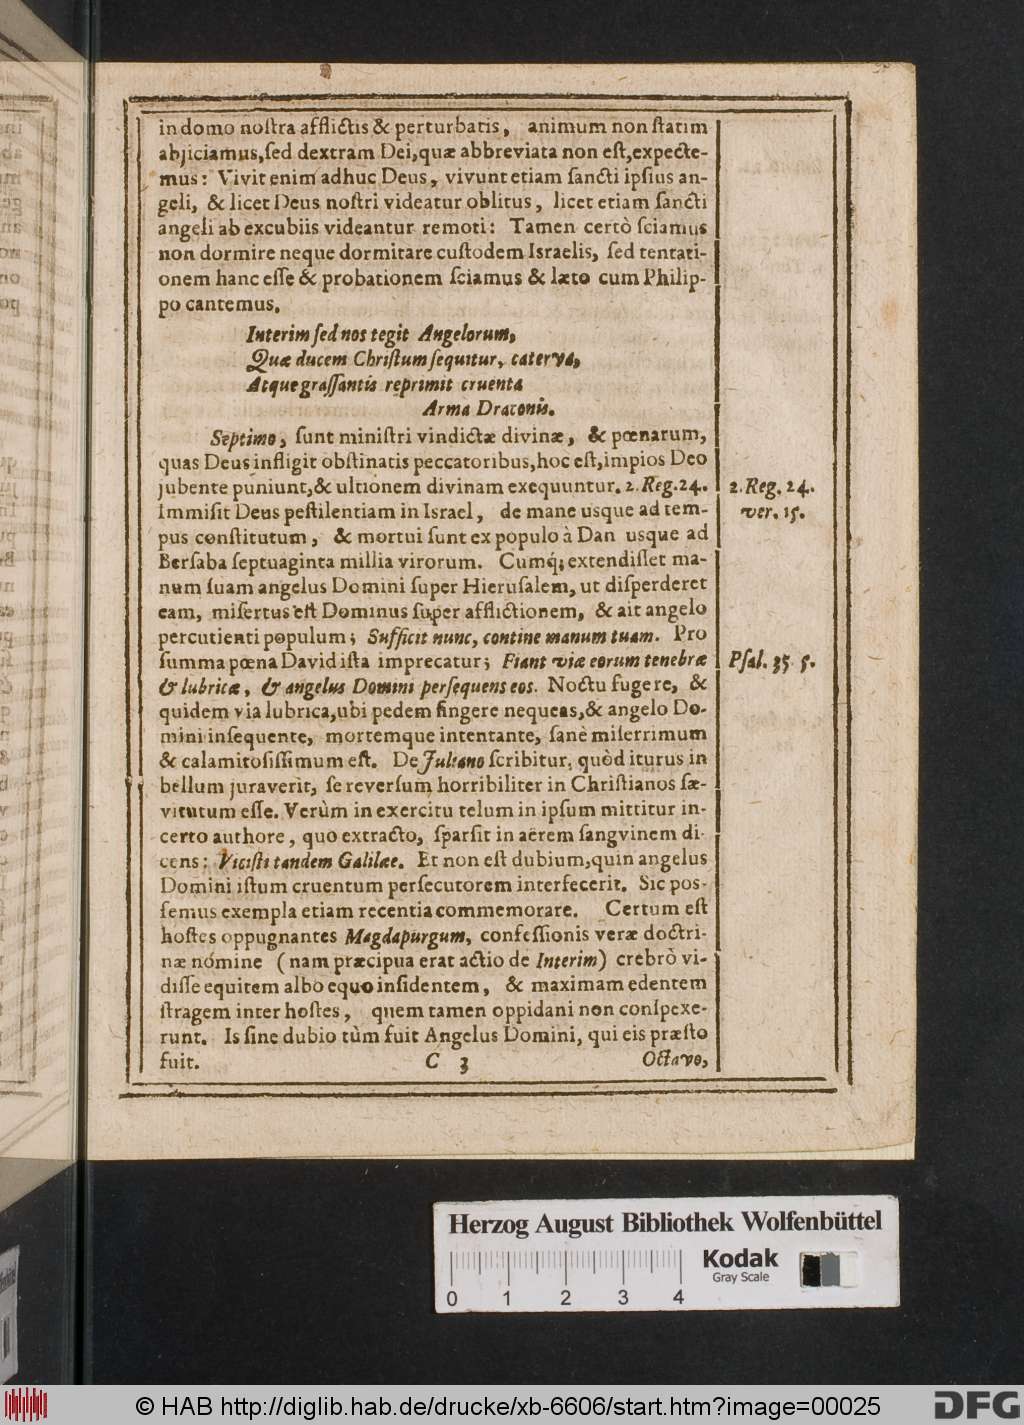 in domo noſtra afflictis & perturbatis, animum non ſtatim
abjiciamus, ſed dextram Dei, quæ abbreviata non eſt, expecte-
mus: Vivit enim adhuc Deus, vivunt etiam ſancti ipſius an-
geli, & licet Deus noſtri videatur oblitus, licet etiam ſancti
angeli ab excubiis videantur remoti: Tamen certò ſciamus
non dormire neque dormitare cuſtodem Israelis, ſed tentati-
onem hanc eſſe & probationem ſciamus & læto cum Philip-
po cantemus.
Interim ſed nos tegit Angelorum,
Quæ ducem Chriſtum ſequitur, caterva,
Atque graſſantis reprimit cruenta
Arma Draconis.
Septimo, ſunt miniſtri vindictæ divinæ, & pœnarum,
quas Deus infligit obſtinatis peccatoribus, hoc eſt, impios Deo
jubente puniunt, & ultionem divinam exequuntur. 2. Reg. 24.
2. Reg. 24.
ver. 15.
Immiſit Deus peſtilentiam in Israel, de mane usque ad tem-
pus conſtitutum, & mortui ſunt ex populo à Dan usque ad
Berſaba ſeptuaginta millia virorum. Cumq́; extendiſſet ma-
num ſuam angelus Domini ſuper Hieruſalem, ut diſperderet
eam, miſertus eſt Dominus ſuper afflictionem, & ait angelo
percutienti populum; Sufficit nunc, contine manum tuam. Pro
ſumma pœna David iſta imprecatur; Fiant viæ eorum tenebræ
Pſal. 35. 5.
& lubricæ, & angelus Domini perſequens eos. Noctu fugere, &
quidem via lubrica, ubi pedem fingere nequeas, & angelo Do-
mini inſequente, mortemque intentante, ſanè miſerrimum
& calamitoſiſſimum eſt. De Juliano ſcribitur, quòd iturus in
bellum juraverit, ſe reverſum horribiliter in Chriſtianos ſæ-
viturum eſſe. Verùm in exercitu telum in ipſum mittitur in-
certo authore, quo extracto, ſparſit in aërem ſangvinem di-
cens: Viciſti tandem Galilæe. Et non eſt dubium, quin angelus
Domini iſtum cruentum perſecutorem interfecerit. Sic poſ-
ſemus exempla etiam recentia commemorare. Certum eſt
hoſtes oppugnantes Magdapurgum, confeſſionis veræ doctri-
næ nomine (nam præcipua erat actio de Interim) crebrò vi-
diſſe equitem albo equo inſidentem, & maximam edentem
ſtragem inter hoſtes, quem tamen oppidani non conſpexe-
runt. Is ſine dubio tùm fuit Angelus Domini, qui eis præſto
fuit. C 3 Octavo,
Herzog August Bibliothek Wolfenbüttel
Kodak
Gray Scale
0 1 2 3 4
© HAB http://diglib.hab.de/drucke/xb-6606/start.htm?image=00025
DFG